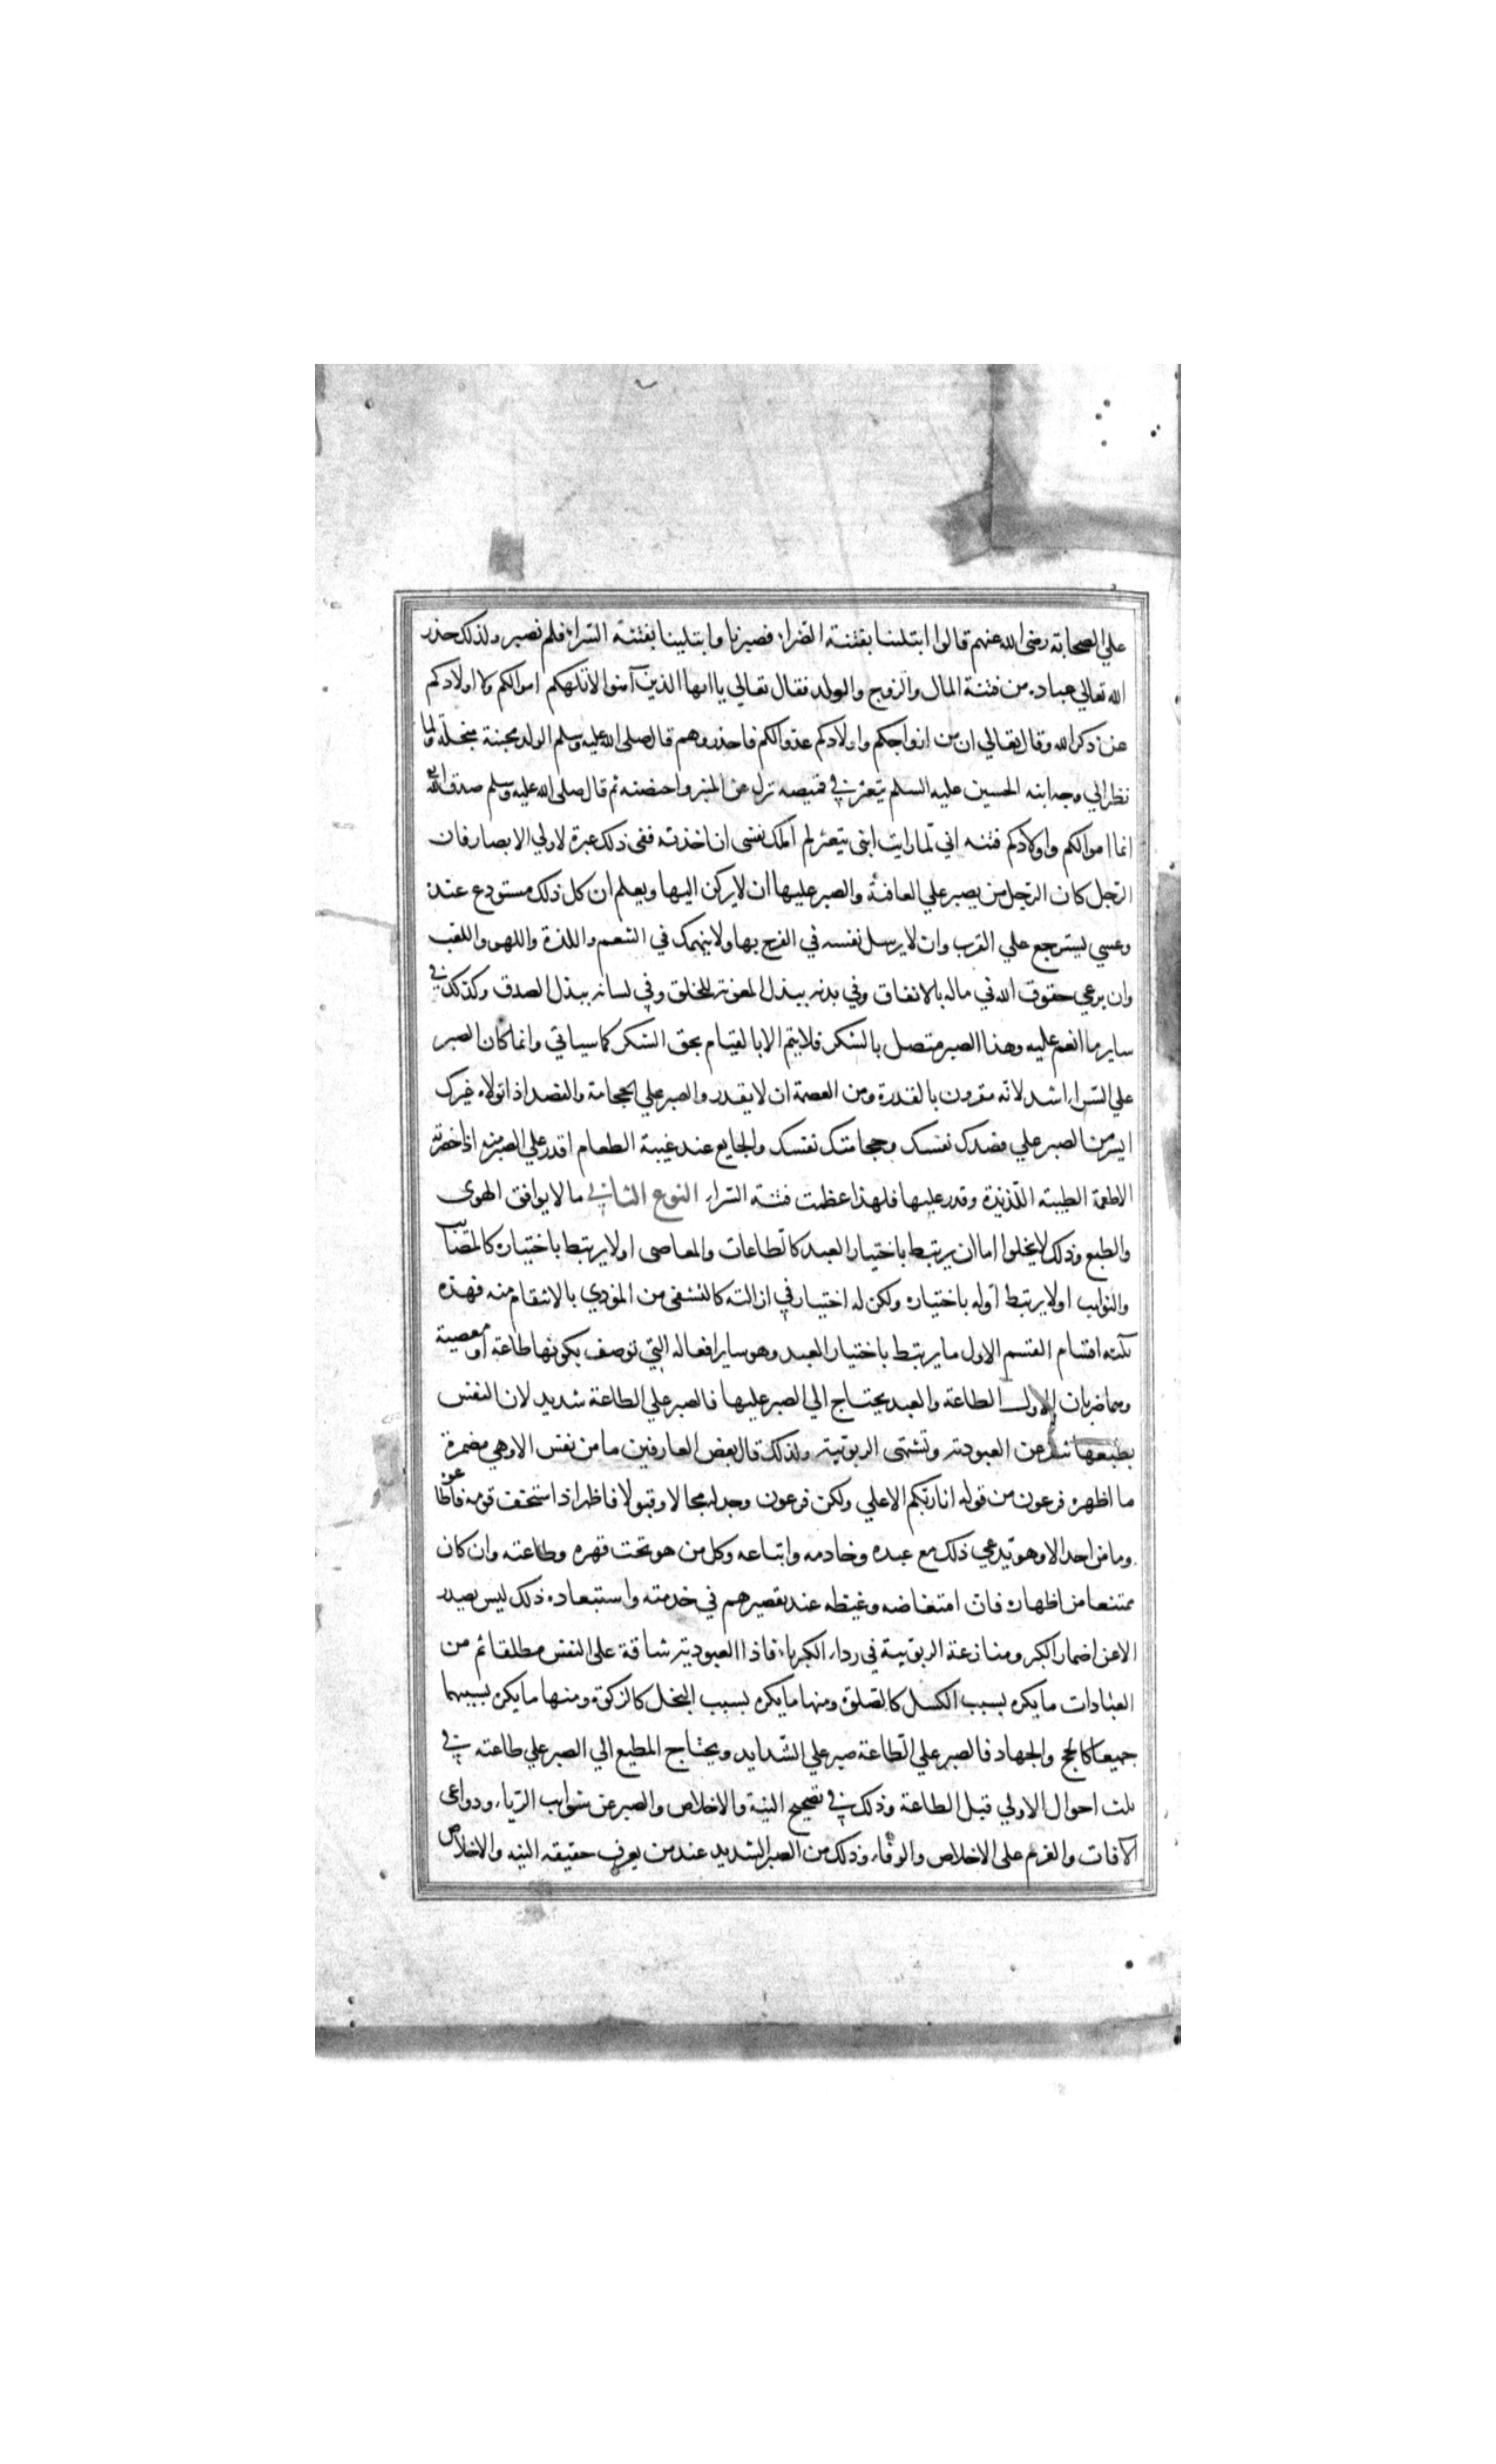 علي الصحابة رضى الله عنهم قالوا ابتلينا بفتنة الضراء فصبرنا وابتلينا بفتنة السراء فلم نصبر ولذلك حذر
الله تعالي عباده من فتنة المال والزوج والولد فقال تعالي ياايها الذين آمنوا لا تلهكم اموالكم ولا اولادكم
عن ذكر الله وقال تعالي ان من ازواجكم واولادكم عدوالكم فاحذروهم قال صلى الله عليه وسلم الولد مجبنة مبخلة ولما
نظر الي وجه ابنه الحسين عليه السلم يتعثر في قميصه نزل عن المنبر واحضنه ثم قال صلى الله عليه وسلم صدق الله
انما اموالكم واولادكم فتنه اني لما رايت ابنى يتعثر لم املك نفسى ان اخذته ففى ذلك عبرة لاولي الابصار فان
الرجل كان الرجل من يصبر علي العافية والصبر عليها ان لا يركن اليها ويعلم ان كل ذلك مستودع عنده
وعسي يسترجع علي القرب وان لا يرسل نفسه في الفرح بها ولا ينهمك في التنعم واللذة واللهو واللعب
وان يرعي حقوق الله في ماله بالانفاق وفي بدنه ببذل المعونة للخلق وفي لسانه ببذل الصدق وكذلك في
ساير ما انعم عليه وهذا الصبر متصل بالشكر فلا يتم الا بالقيام بحق الشكر كما سياتي وانما كان الصبر
علي السراء اشد لانه مقرون بالقدرة ومن العصمة ان لا يقدر والصبر علي الحجامة والفصد اذا تولاه غيرك
ايسر من الصبر علي فصدك نفسك وحجامتك نفسك والجايع عند غيبة الطعام اقدر علي الصبر منه اذا حضرته
الاطعمة الطيبة اللذيذة وقدر عليها فلهذا عظمت فتنة السراء النوع الثاني ما لا يوافق الهوى
والطبع وذلك لا يخلوا اما ان يرتبط باختيار العبد كالطاعات والمعاصى اولا يرتبط باختياره كالمصائب
والنوايب اولا يرتبط اوله باختياره ولكن له اختيار في ازالته كالتشفى من الموذي بالانتقام منه فهذه
ثلثه اقسام القسم الاول ما يرتبط باختيار العبد وهو ساير افعاله التي توصف بكونها طاعة او معصية
وهما ضربان الاول الطاعة والعبد يحتاج الي الصبر عليها فالصبر علي الطاعة شديد لان النفس
بطبعها تنفر عن العبودية وتشتهى الربوبية ولذلك قال بعض العارفين ما من نفس الا وهي مضمرة
ما اظهره فرعون من قوله انا ربكم الاعلي ولكن فرعون وجد له مجالا وقبولا فاظهر اذ استخف قومه فاطاعوه
وما من احد الا وهو يدعي ذلك مع عبده وخادمه واتباعه وكل من هو تحت قهره وطاعته وان كان
ممتنعا من اظهاره فان امتعاضه وغيظه عند تقصيرهم في خدمته واستبعاده ذلك ليس يصدر
الا عن اضمار الكبر ومنازعة الربوبية في رداء الكبرياء فاذا العبودية شاقة على النفس مطلقا ثم من
العبادات ما يكره بسبب الكسل كالصلوة ومنها ما يكره بسبب البخل كالزكوة ومنها ما يكره بسببهما
جميعا كالحج والجهاد فالصبر علي الطاعة صبر علي الشدايد ويحتاج المطيع الي الصبر علي طاعته في
ثلث احوال الاولي قبل الطاعة وذلك في تصحيح النية والاخلاص والصبر عن شوايب الرياء ودواعى
الآفات والعزم على الاخلاص والوفاء وذلك من الصبر الشديد عند من يعرف حقيقه النيه والاخلاص